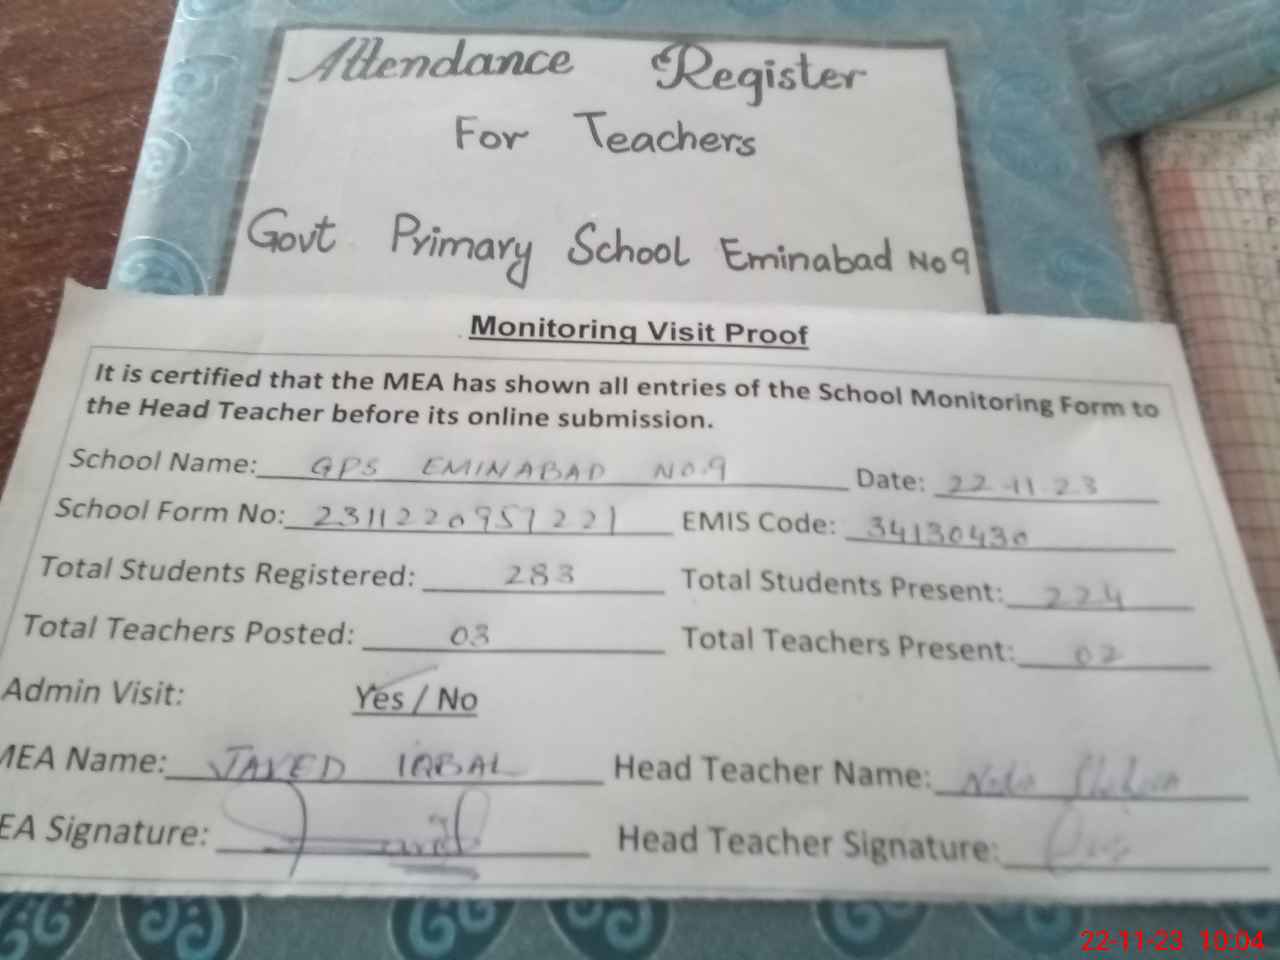 Attendance Register
For Teachers
Govt Primary School Eminabad No 9
Monitoring Visit Proof
It is certified that the MEA has shown all entries of the School Monitoring Form to
the Head Teacher before its online submission.
School Name: GPS EMINABAD NO.9 Date: 22-11-23
School Form No: 2311220957221 EMIS Code: 34130430
Total Students Registered: 283 Total Students Present: 224
Total Teachers Posted: 03 Total Teachers Present: 02
Admin Visit: Yes / No
MEA Name: JAVED IQBAL Head Teacher Name:
EA Signature: Head Teacher Signature:
22-11-23 10:04